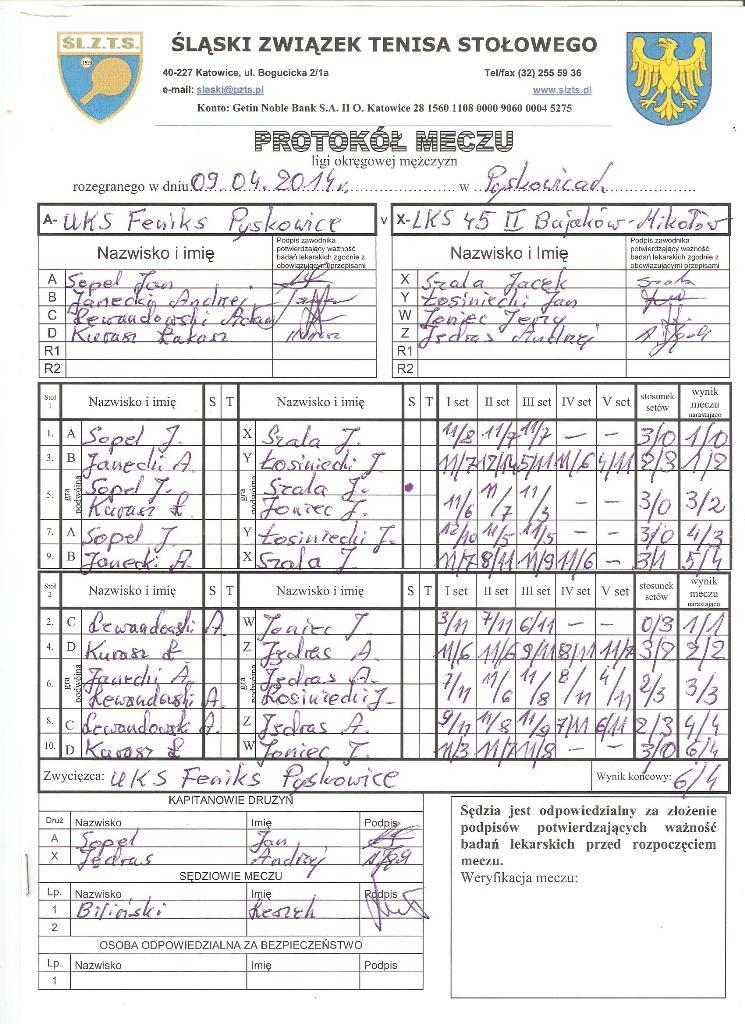 ŚL.Z.T.S.
ŚLĄSKI ZWIĄZEK TENISA STOŁOWEGO
40-227 Katowice, ul. Bogucicka 2/1a Tel/fax (32) 255 59 36
e-mail: slaski@pzts.pl www.slzts.pl
Konto: Getin Noble Bank S.A. II O. Katowice 28 1560 1108 0000 9060 0004 5275
PROTOKÓŁ MECZU
ligi okręgowej mężczyzn
rozegranego w dniu 09.04.2014r. w Pyskowicach
A- UKS Feniks Pyskowice v X- LKS 45 II Bujaków-Mikołów
Nazwisko i imię Podpis zawodnika potwierdzający ważność badań lekarskich zgodnie z obowiązującymi przepisami Nazwisko i Imię Podpis zawodnika potwierdzający ważność badań lekarskich zgodnie z obowiązującymi przepisami
A Sopel Jan X Szala Jacek Szala
B Janecki Andrzej Y Łosiniecki Jan
C Lewandowski Adam W Joniec Jerzy
D Kurasz Łukasz Z Jędras Andrzej
R1 R1
R2 R2
Stół 1 Nazwisko i imię S T Nazwisko i imię S T I set II set III set IV set V set stosunek setów wynik meczu narastająco
1. A Sopel J. X Szala J. 11/8 11/7 11/7 – – 3/0 1/0
3. B Janecki A. Y Łosiniecki J 11/7 12/14 5/11 11/6 4/11 2/3 1/2
5. gra podwójna Sopel J. Kurasz Ł. gra podwójna Szala J. Joniec J. 11/6 11/7 11/3 – – 3/0 3/2
7. A Sopel J Y Łosiniecki J. 12/10 11/5 11/5 – – 3/0 4/3
9. B Janecki A. X Szala J 11/7 8/11 11/9 11/6 – 3/1 5/4
Stół 2 Nazwisko i imię S T Nazwisko i imię S T I set II set III set IV set V set stosunek setów wynik meczu narastająco
2. C Lewandowski A. W Joniec J. 3/11 7/11 6/11 – – 0/3 1/1
4. D Kurasz Ł Z Jędras A. 11/6 11/6 9/11 8/11 11/7 3/2 2/2
6. gra podwójna Janecki A. Lewandowski A. gra podwójna Jędras A. Łosiniecki J. 7/11 11/6 11/8 8/11 4/11 2/3 3/3
8. C Lewandowski A. Z Jędras A. 9/11 11/8 11/9 7/11 6/11 2/3 4/4
10. D Kurasz Ł. W Joniec J. 11/3 11/7 11/8 – – 3/0 6/4
Zwycięzca: UKS Feniks Pyskowice Wynik końcowy: 6/4
KAPITANOWIE DRUŻYN
Druż Nazwisko Imię Podpis
A Sopel Jan
X Jędras Andrzej
SĘDZIOWIE MECZU
Lp. Nazwisko Imię Podpis
1 Biliński Leszek
2
OSOBA ODPOWIEDZIALNA ZA BEZPIECZEŃSTWO
Lp. Nazwisko Imię Podpis
1
Sędzia jest odpowiedzialny za złożenie
podpisów potwierdzających ważność
badań lekarskich przed rozpoczęciem
meczu.
Weryfikacja meczu: